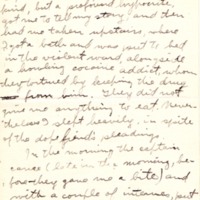 kind, but a profound hypocrite,
got me to tell my story, and then
had me taken upstairs, where
I got a bath and was put to bed
in the violent ward, alongside
a howling cocaine addict, whom
they tortured by keeping the drug
from him. They did not
give me anything to eat. Never-
theless I slept heavily, in spite
of the dope fiend's pleadings.
In the morning the captain
came (late in the morning, be-
fore they gave me a bite) and
with a couple of internes, put